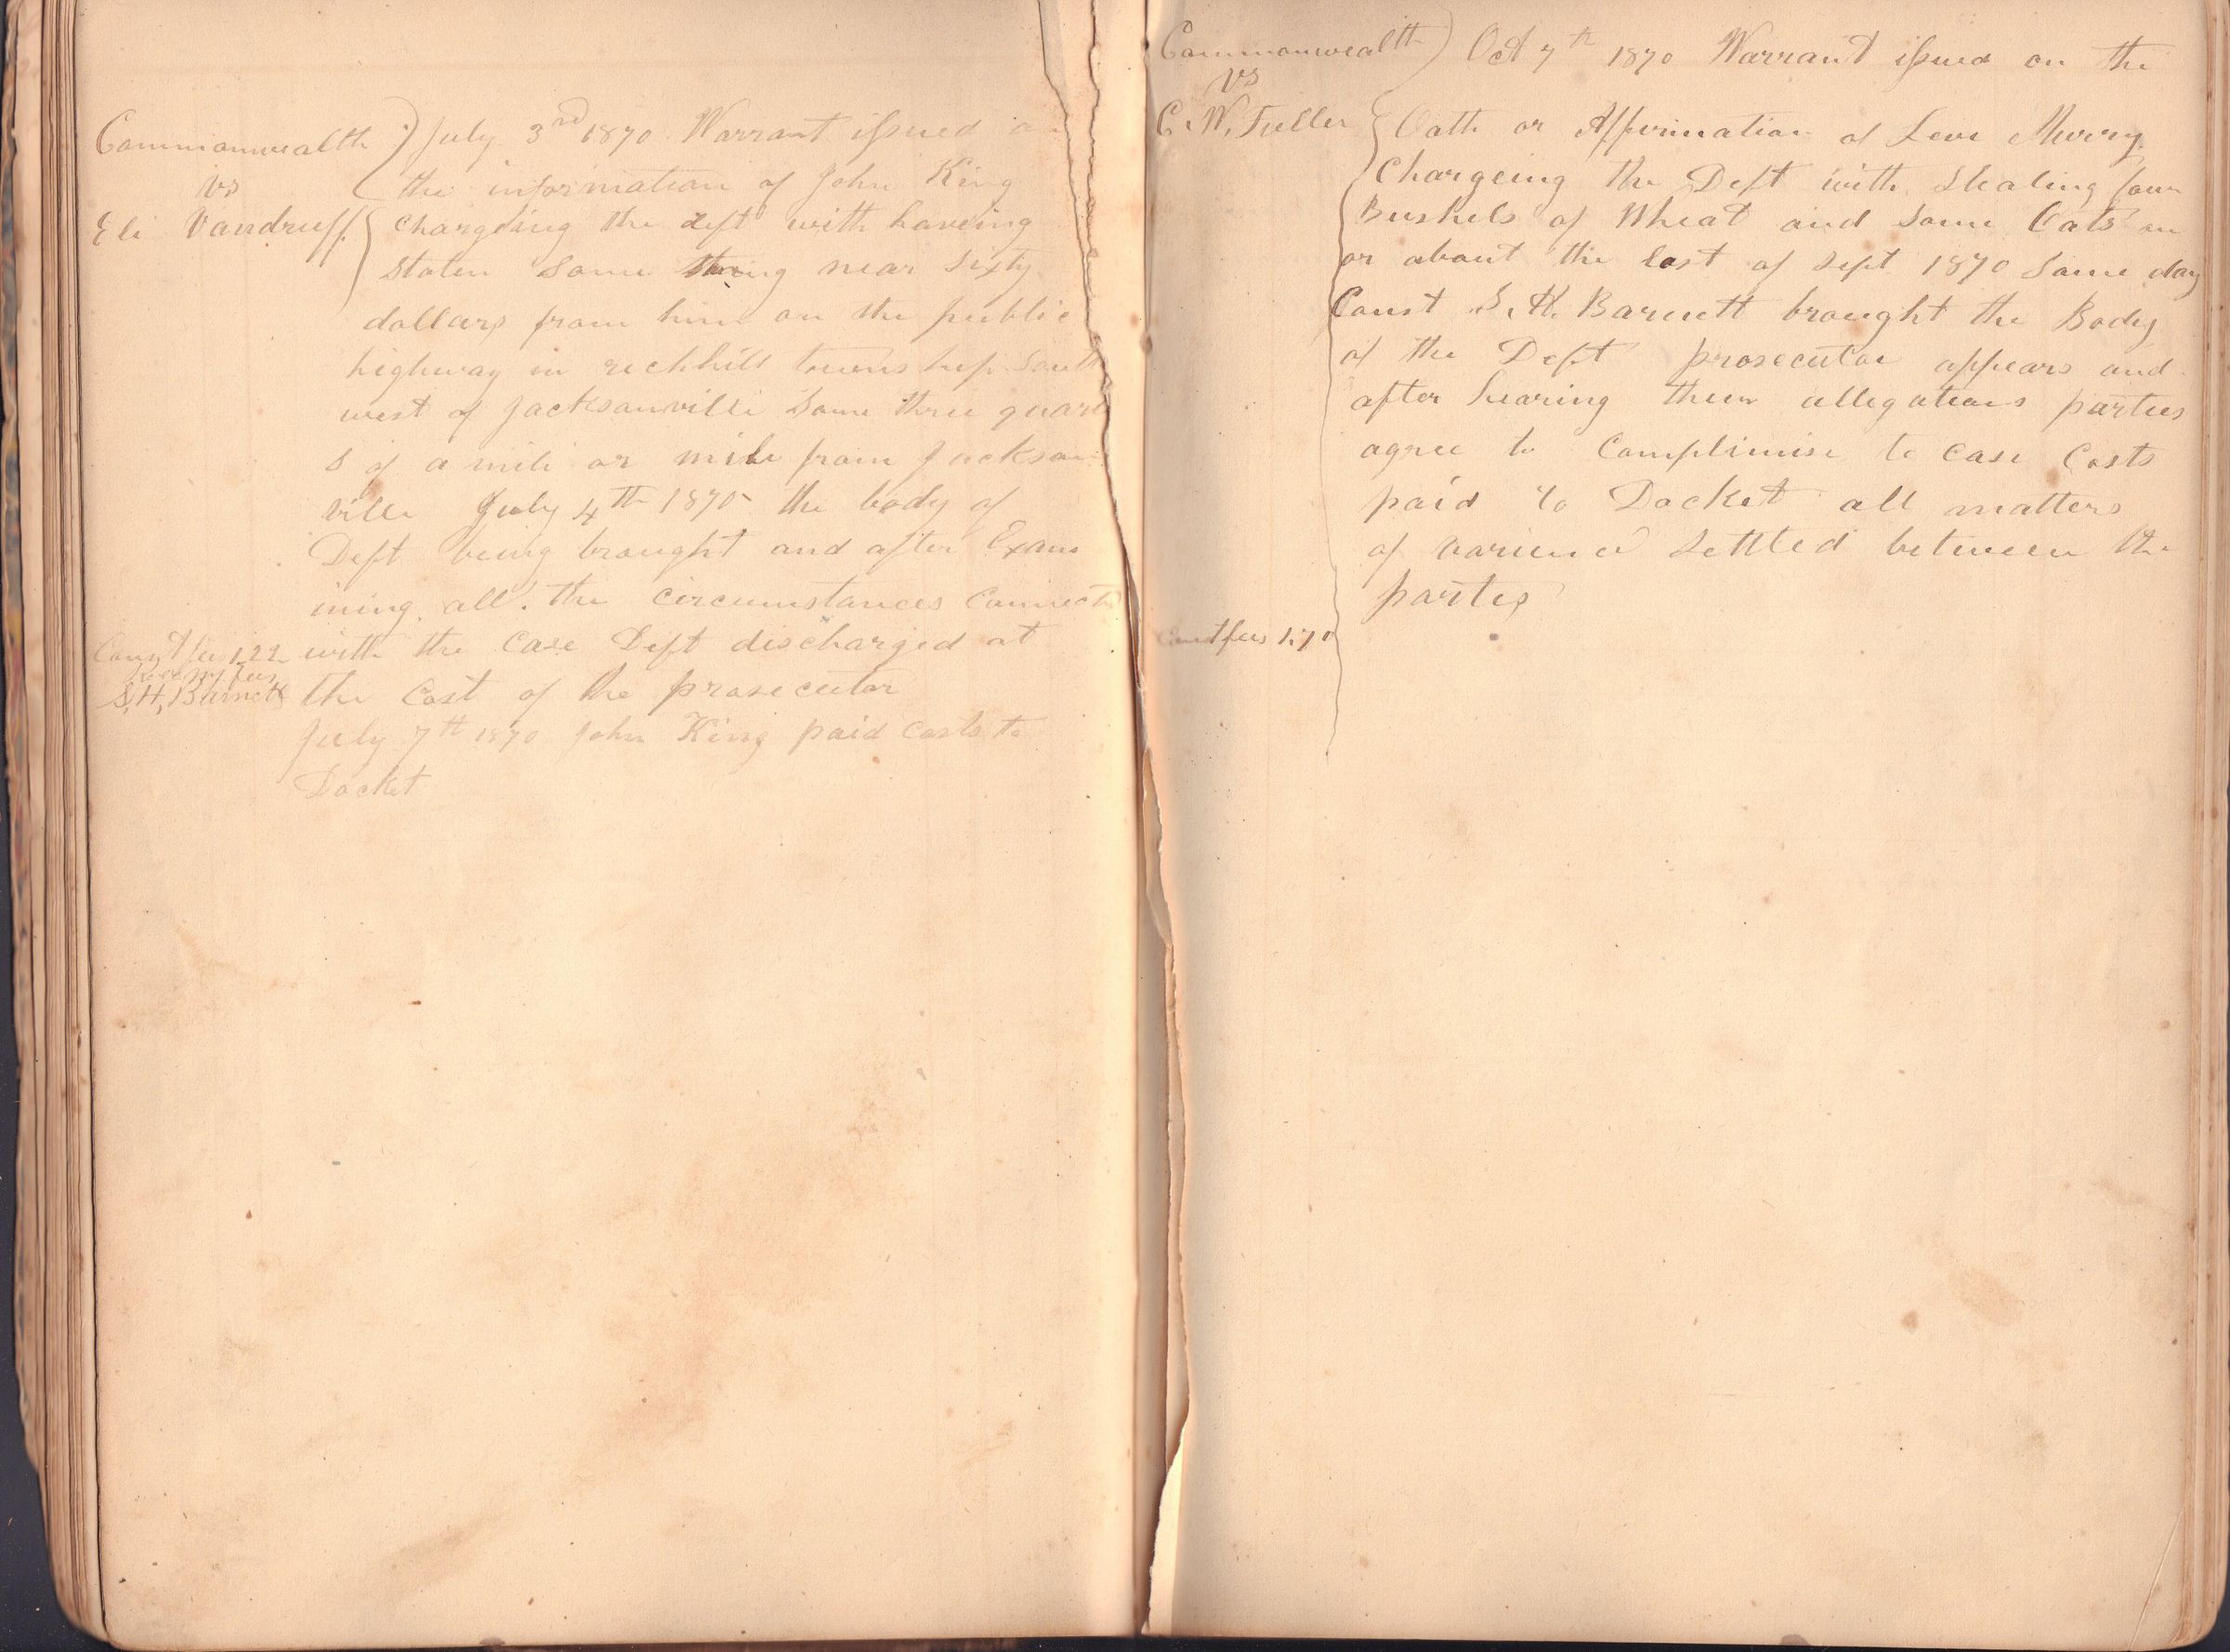 Commonwealth
vs
Eli Vandruff
July 3rd 1870 Warrant issued
the information of John King
chargeing the deft with haveing
stolen some near sixty
dollars from him on the public
highway in richhill township South
west of Jacksonville some three quare
s of a mile or mile from Jackson
ville July 4th 1870 the body of
Deft being brought and after Exam
ining all the circumstances connect
with the case Deft discharged at
the Cost of the prosecutor
July 7th 1870 John King paid costs to
Docket
Const fees 1.22
fees
S, H, Barnett
Commonwealth
vs
C. W. Fuller
Oct 7th 1870 Warrant issued on the
Oath or Affirmation of Levi Murry
Chargeing the Deft with Stealing four
Bushels of Wheat and some Oats on
or about the last of Sept 1870 Same day
Const S. H. Barnett brought the Body
of the Deft prosecutor appears and
after hearing their allegations parties
agree to Complimise te case Costs
paid to Docket all matters
of varience settled between the
parties
Const fees 1.70